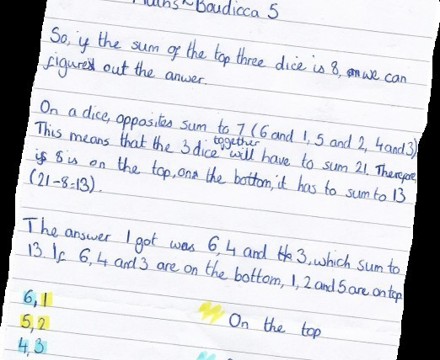 Maths~Boudicca 5
So, if the sum of the top three dice is 8, we can
figured out the anwer.
On a dice, opposites sum to 7 (6 and 1, 5 and 2, 4and3)
This means that the 3 dice together will have to sum 21. Therefore
if 8 is on the top, on the bottom, it has to sum to 13
(21-8=13).
The answer I got was 6,4 and 3, which sum to
13. If 6,4 and 3 are on the bottom, 1, 2 and 5 are on top
6,1
On the top
5,2
4,3